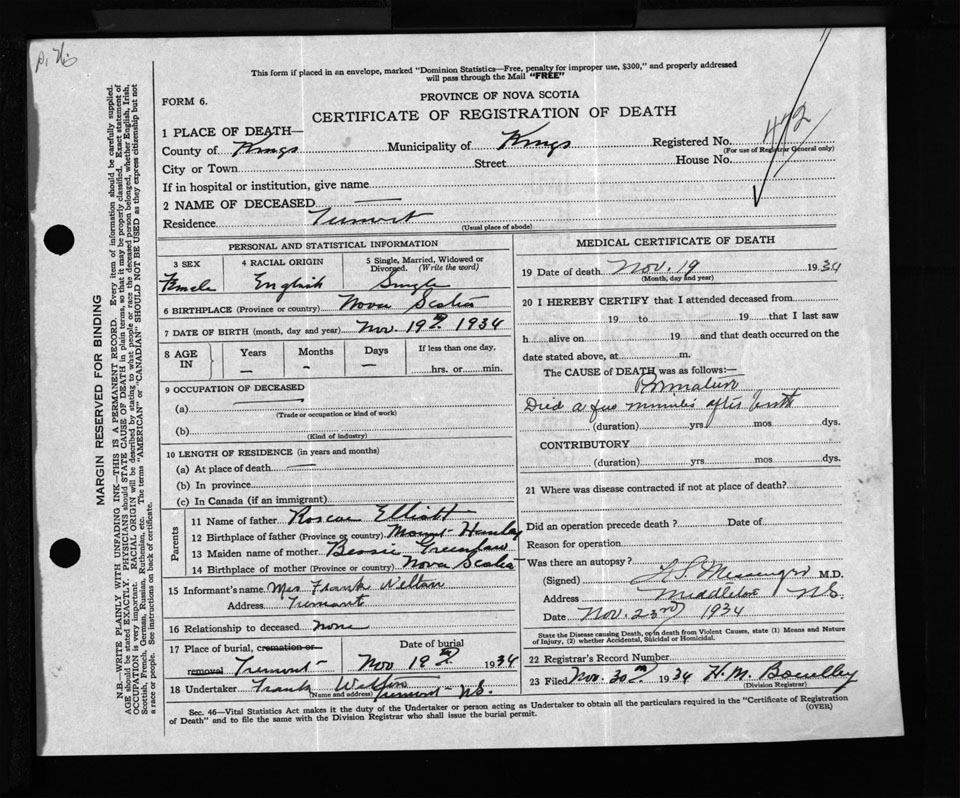 This form if placed in an envelope, marked "Dominion Statistics—Free, penalty for improper use, $300," and properly addressed
will pass through the Mail "FREE"
FORM 6.
PROVINCE OF NOVA SCOTIA
CERTIFICATE OF REGISTRATION OF DEATH
1 PLACE OF DEATH—
County of Kings Municipality of Kings Registered No. 442
(For use of Registrar General only)
City or Town Street House No.
If in hospital or institution, give name
2 NAME OF DECEASED —
Residence Tremont
(Usual place of abode)
PERSONAL AND STATISTICAL INFORMATION
3 SEX 4 RACIAL ORIGIN 5 Single, Married, Widowed or Divorced. (Write the word)
Female English Single
6 BIRTHPLACE (Province or country) Nova Scotia
7 DATE OF BIRTH (month, day and year) Nov. 19th 1934
8 AGE IN Years Months Days If less than one day,
— — — hrs. or min.
9 OCCUPATION OF DECEASED
(a) —
(Trade or occupation or kind of work)
(b)
(Kind of industry)
10 LENGTH OF RESIDENCE (in years and months)
(a) At place of death —
(b) In province
(c) In Canada (if an immigrant)
Parents
11 Name of father Roscoe Elliott
12 Birthplace of father (Province or country) Mount Hanley
13 Maiden name of mother Bessie Greenlaw
14 Birthplace of mother (Province or country) Nova Scotia
15 Informant's name Mrs Frank Welton
Address Tremont
16 Relationship to deceased none
17 Place of burial, cremation or removal Tremont Date of burial Nov 19th 1934
18 Undertaker Frank Welton
(Name and address) Tremont N.S.
MEDICAL CERTIFICATE OF DEATH
19 Date of death Nov. 19 1934
(Month, day and year)
20 I HEREBY CERTIFY that I attended deceased from
19 to 19 that I last saw
h alive on 19 and that death occurred on the
date stated above, at m.
The CAUSE of DEATH was as follows:—
Premature
Died a few minutes after birth
(duration) yrs mos dys.
CONTRIBUTORY
(duration) yrs mos dys.
21 Where was disease contracted if not at place of death?
Did an operation precede death? Date of
Reason for operation
Was there an autopsy?
(Signed) Messenger M.D.
Address Middleton N.S.
Date Nov. 23rd 1934
State the Disease causing Death, or in death from Violent Causes, state (1) Means and Nature
of Injury, (2) whether Accidental, Suicidal or Homicidal.
22 Registrar's Record Number
23 Filed Nov. 30th 1934 H. M.
(Division Registrar)
Sec. 46—Vital Statistics Act makes it the duty of the Undertaker or person acting as Undertaker to obtain all the particulars required in the "Certificate of Registration
of Death" and to file the same with the Division Registrar who shall issue the burial permit. (OVER)
MARGIN RESERVED FOR BINDING
N.B.—WRITE PLAINLY WITH UNFADING INK—THIS IS A PERMANENT RECORD. Every item of information should be carefully supplied.
AGE should be stated EXACTLY. PHYSICIANS should STATE CAUSE OF DEATH in plain terms, so that it may be properly classified. Exact statement of
OCCUPATION is very important. RACIAL ORIGIN will be described by stating to what people or race the deceased person belonged, whether English, Irish,
Scottish, French, German, Russian, Ruthenian, etc. The terms "AMERICAN" or "CANADIAN" SHOULD NOT BE USED as they express citizenship but not
a race or people. See instructions on back of certificate.